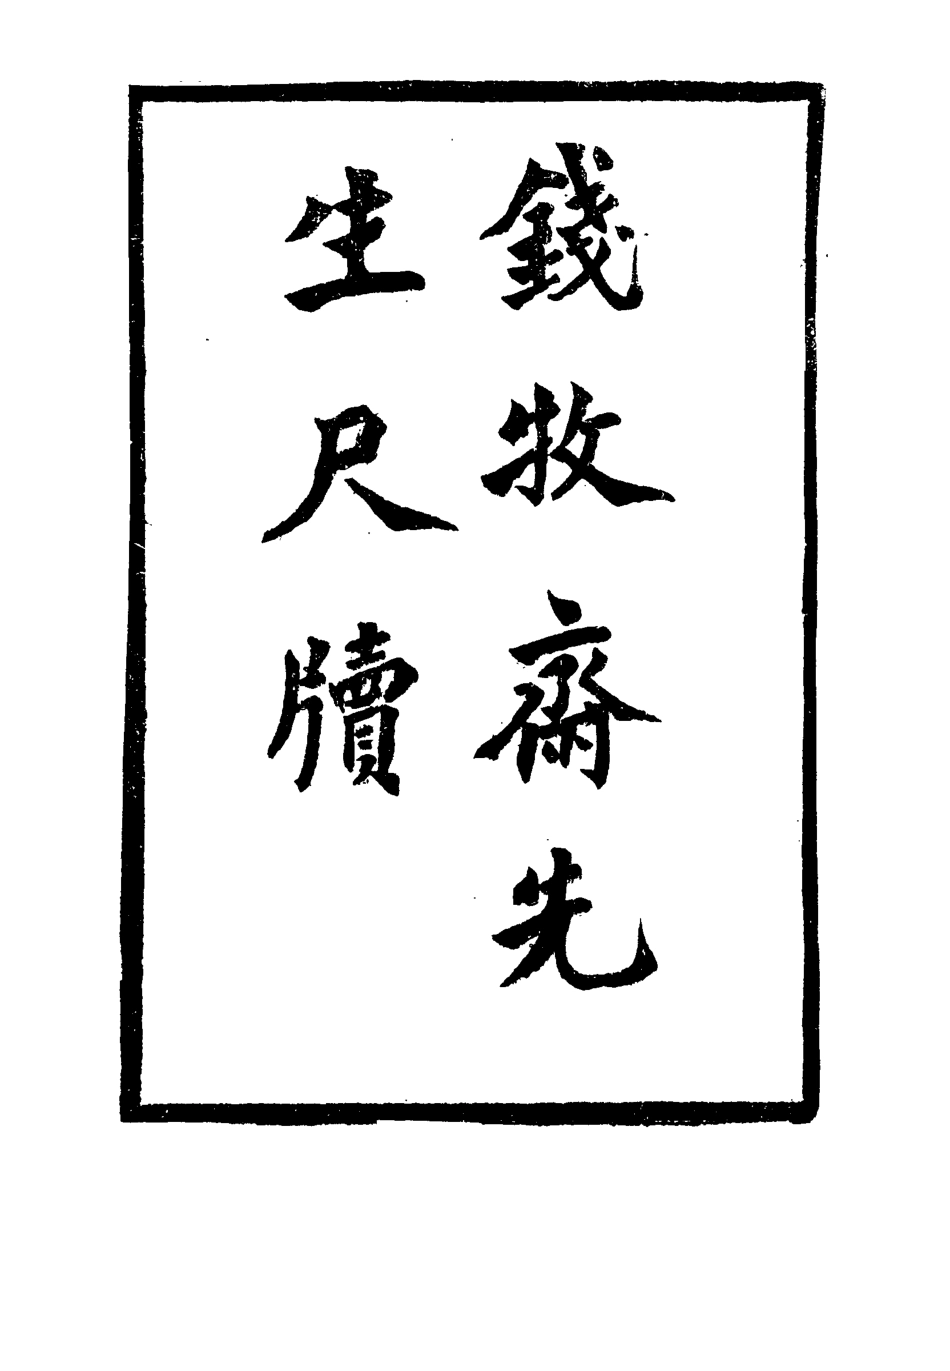 錢牧齋先
生尺牘